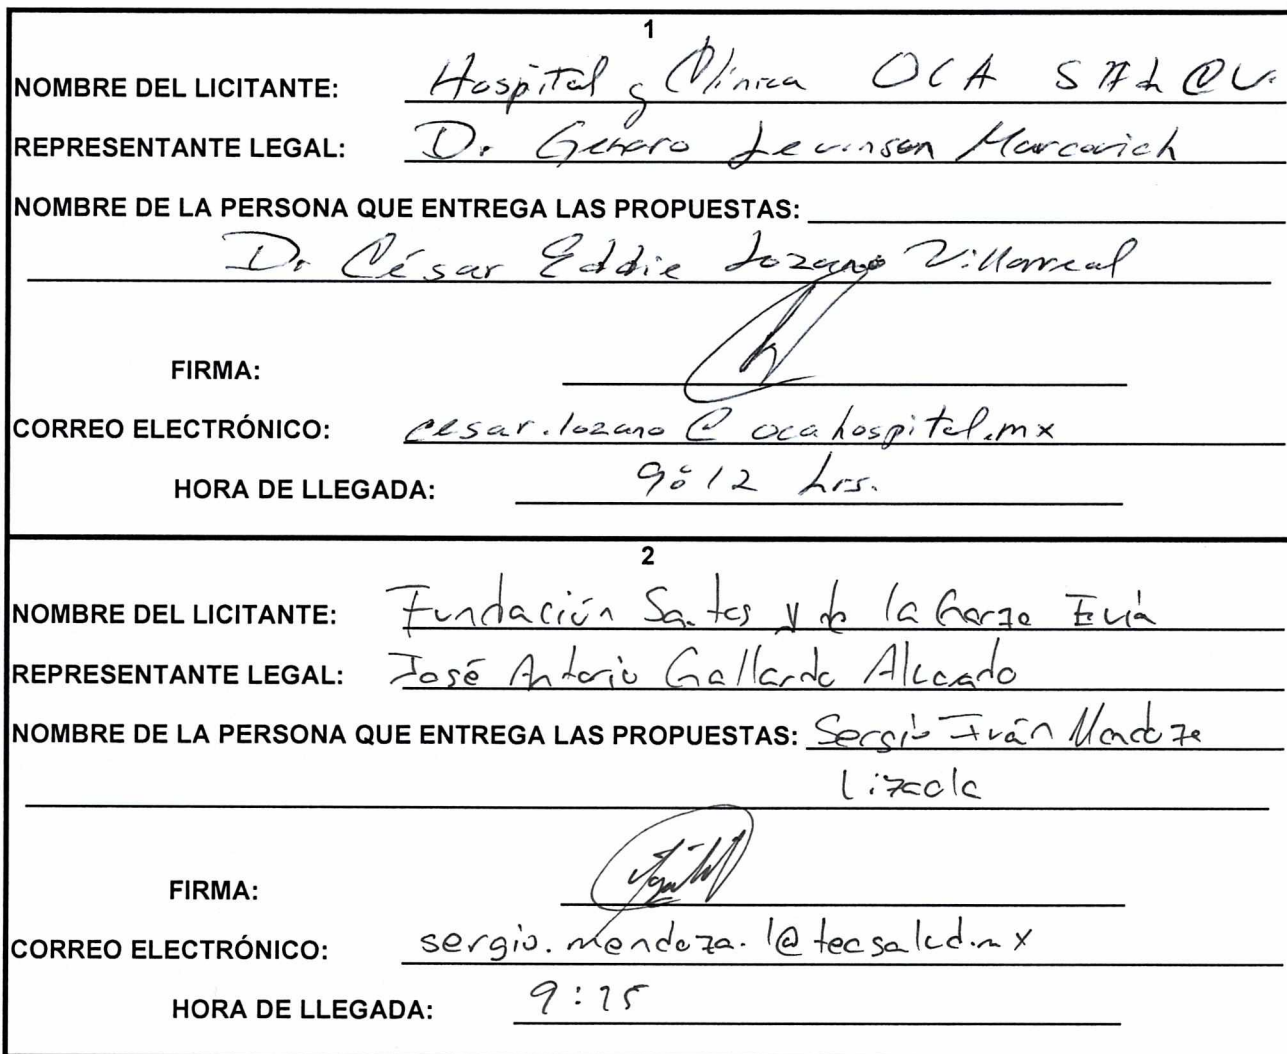 1
NOMBRE DEL LICITANTE: Hospital y Clínica OCA SA de CV.
REPRESENTANTE LEGAL: Dr Genaro Levinson Marcovich
NOMBRE DE LA PERSONA QUE ENTREGA LAS PROPUESTAS:
Dr César Eddie Lozano Villarreal
FIRMA:
CORREO ELECTRÓNICO: cesar.lozano@ocahospital.mx
HORA DE LLEGADA: 9:12 hrs.
2
NOMBRE DEL LICITANTE: Fundación Santos y de la Garza Evia
REPRESENTANTE LEGAL: José Antonio Gallardo
NOMBRE DE LA PERSONA QUE ENTREGA LAS PROPUESTAS: Sergio Iván Mendoza
Lizcola
FIRMA:
CORREO ELECTRÓNICO: sergio.mendoza.l@tecsalud.mx
HORA DE LLEGADA: